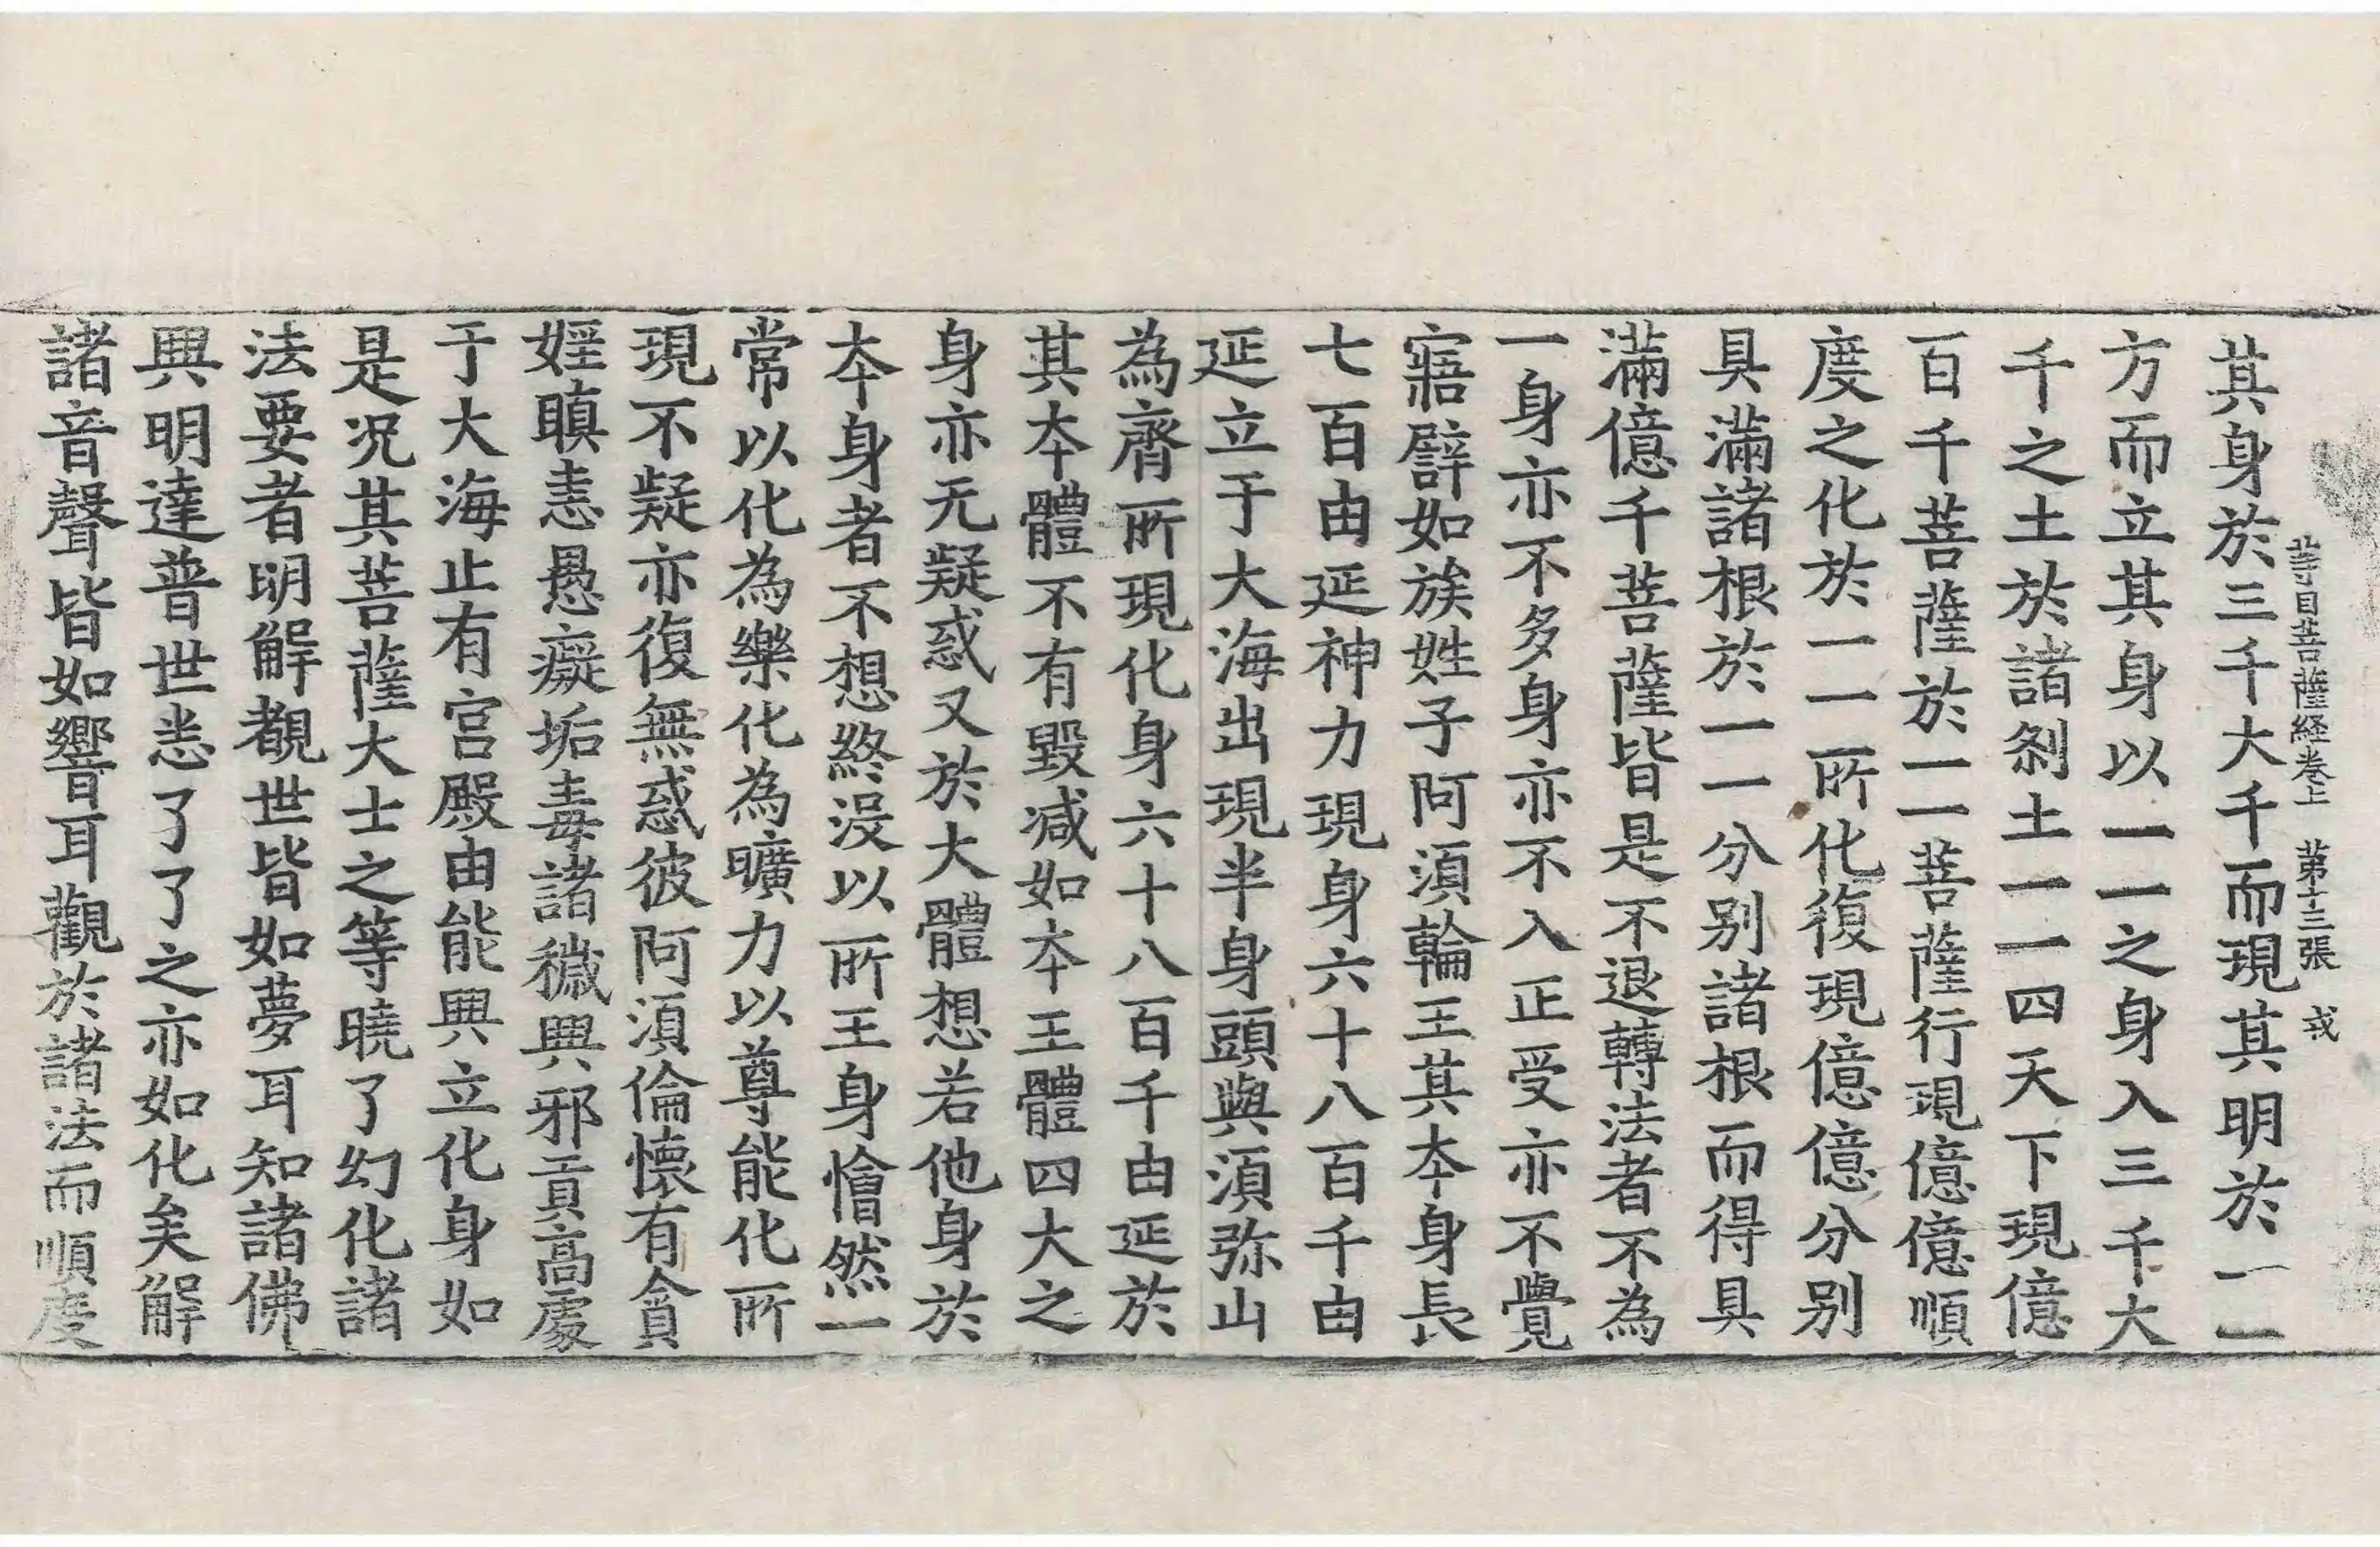 等目菩薩経卷上　第十三張　戎
其身於三千大千而現其明於一一
方而立其身以一一之身入三千大
千之土於諸刹土一一四天下現億
百千菩薩於一一菩薩行現億億順
度之化於一一所化復現億億分别
具滿諸根於一一分别諸根而得具
滿億千菩薩皆是不退轉法者不為
一身亦不多身亦不入正受亦不覺
寤譬如族姓子阿湏輪王其夲身長
七百由延神力現身六十八百千由
延立于大海出現半身頭與湏弥山
為齊所現化身六十八百千由延於
其夲體不有毀减如夲王體四大之
身亦无疑惑又於大體想若他身於
夲身者不想終没以所王身憺然一
常以化為樂化為曠力以尊能化所
現不疑亦復無惑彼阿湏倫懷有貪
婬瞋恚愚癡垢毒諸穢興邪貢高處
于大海止有宫殿由能興立化身如
是况其菩薩大士之等曉了幻化諸
法要者明解覩世皆如夢耳知諸佛
興明達普世恙了了之亦如化矣解
諸音聲皆如響耳觀於諸法而順度